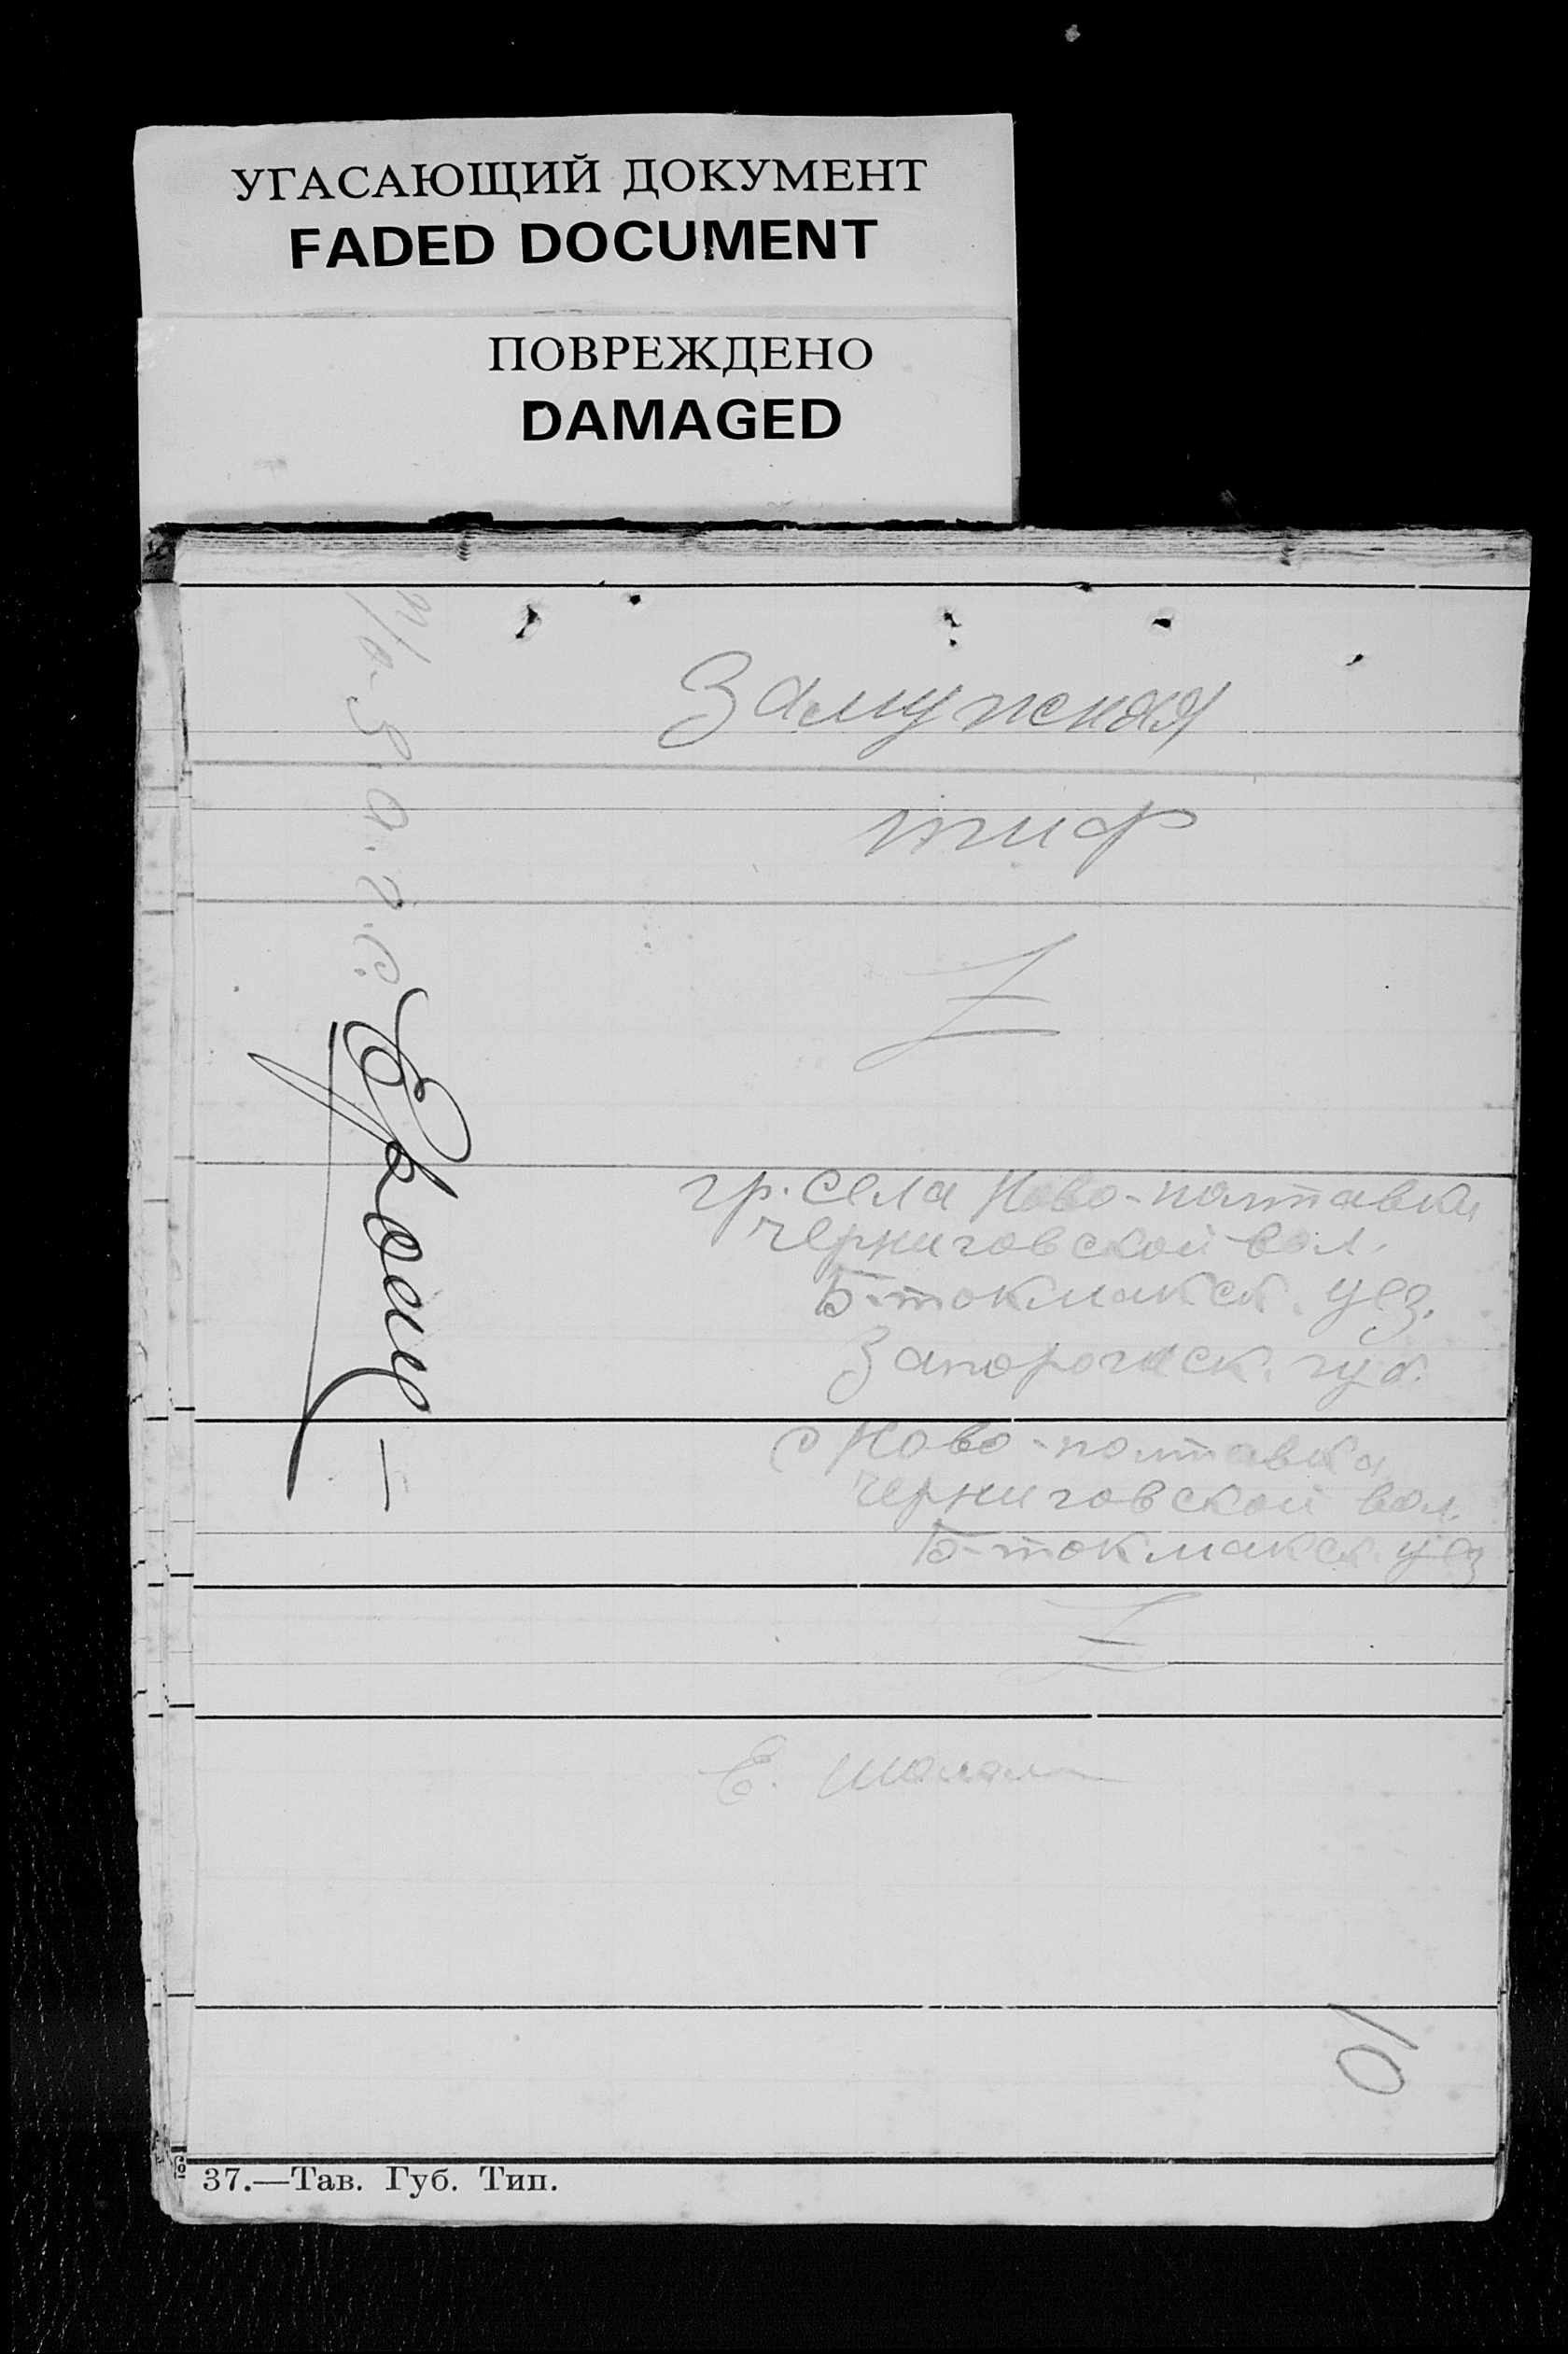 УГАСАЮЩИЙ ДОКУМЕНТ
FADED DOCUMENT
ПОВРЕЖДЕНО
DAMAGED
Замужняя
тиф
гр. села Ново-полтавка
черниговской вол.
Б-токмакск. уез.
Запорожск. губ.
с Ново-полтавка
черниговской вол.
Б-токмакск. уез
Е.
10
37.—Тав. Губ. Тип.